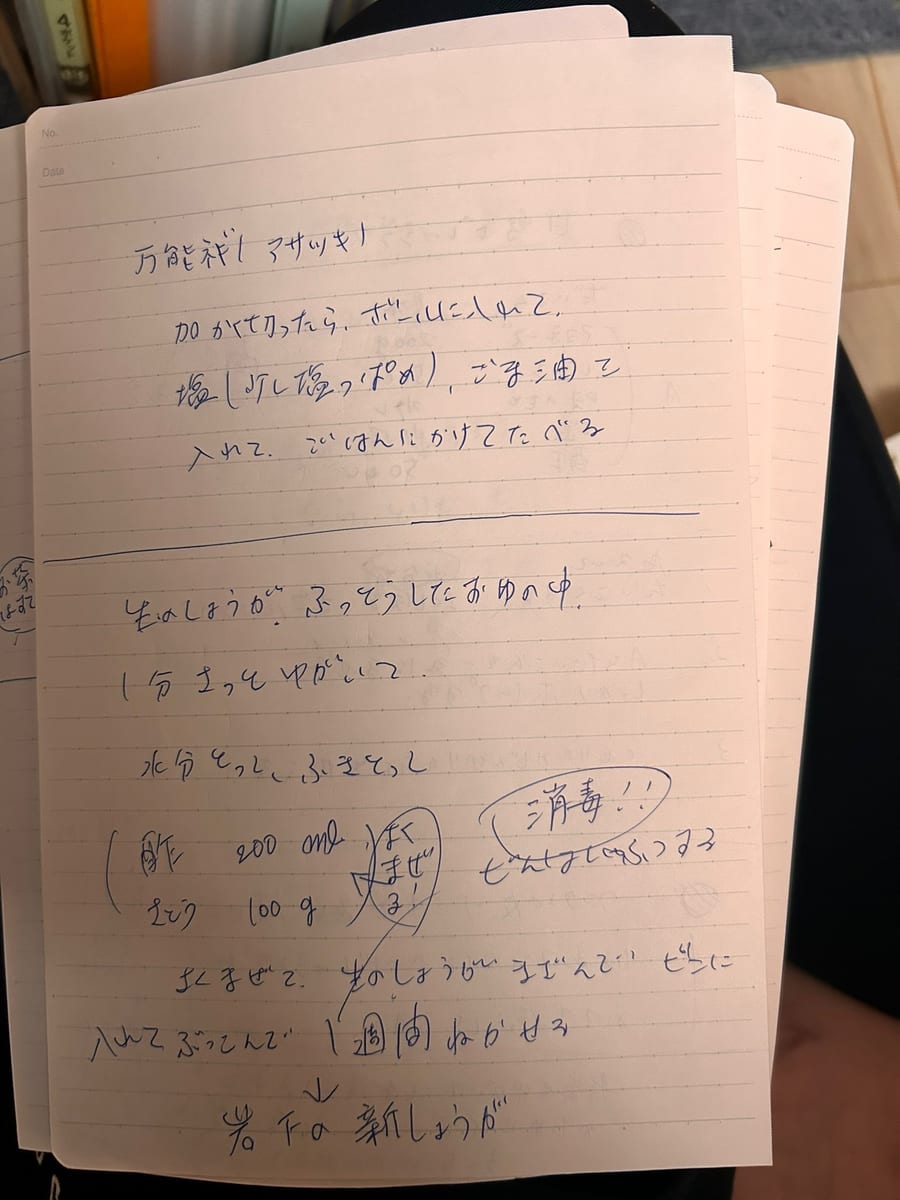 No.
No.
Date
万能ネギ アサツキ
加かく切ったら、ボールに入れて、
塩(少し塩っぱめ)、ごま油で
入れて、ごはんにかけてたべる
生のしょうが、ふっとうしたおゆの中、
1分さっとゆがいて、
水分とって、ふきとって
酢 200 ml
さとう 100 g
よく
まぜ
る!
消毒!!
よくまぜて、生のしょうが ビンに
入れて 1週間ねかせる
↓
岩下の新しょうが
お茶